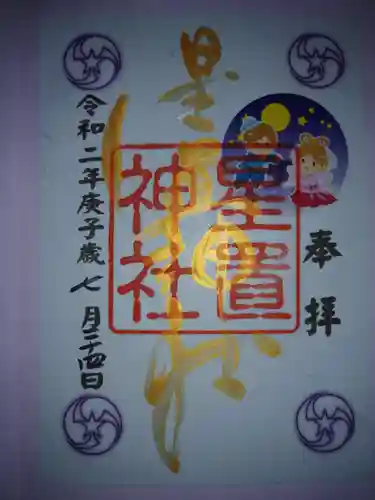 奉拝
星置
神社
令和二年庚子歳七月二十四日